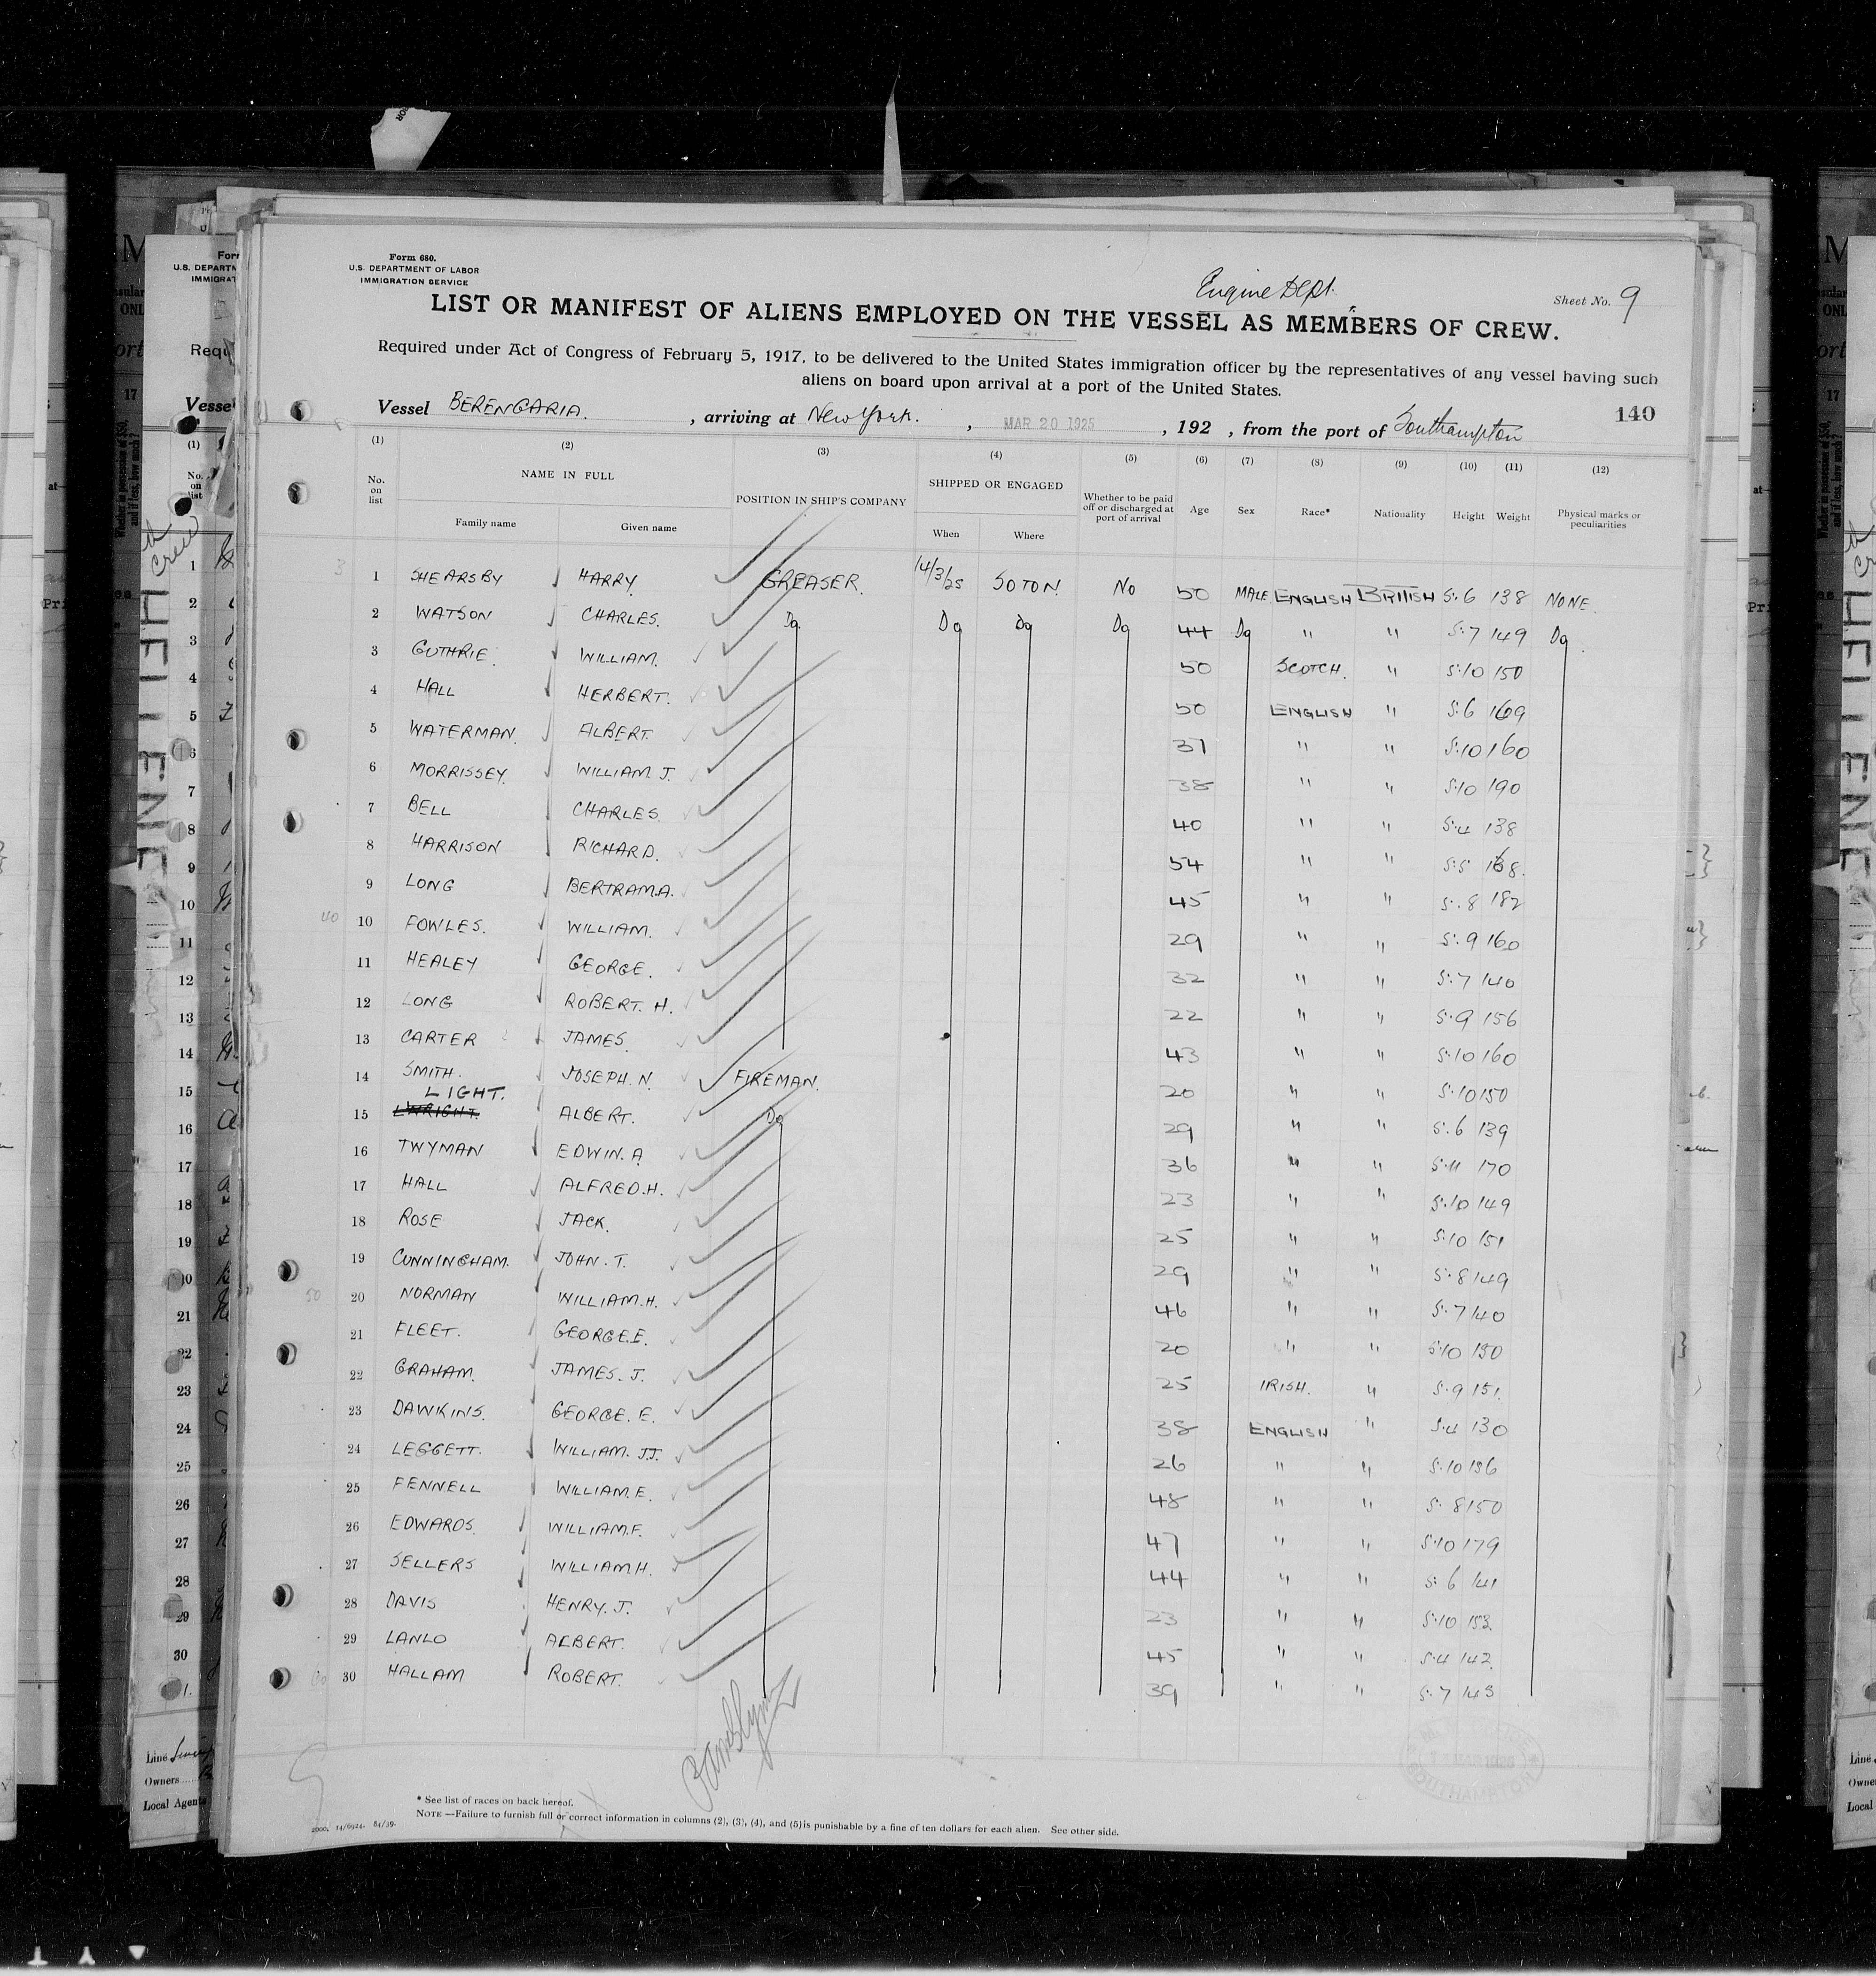 Form 680.
U.S. DEPARTMENT OF LABOR
IMMIGRATION SERVICE
Engine Dept.
Sheet No. 9
LIST OR MANIFEST OF ALIENS EMPLOYED ON THE VESSEL AS MEMBERS OF CREW.
Required under Act of Congress of February 5, 1917, to be delivered to the United States immigration officer by the representatives of any vessel having such
aliens on board upon arrival at a port of the United States.
140
Vessel BERENGARIA. , arriving at New York. , MAR 20 1925 , 192 , from the port of Southampton
(1) (2) (3) (4) (5) (6) (7) (8) (9) (10) (11) (12)
No. on list NAME IN FULL POSITION IN SHIP'S COMPANY SHIPPED OR ENGAGED Whether to be paid off or discharged at port of arrival Age Sex Race* Nationality Height Weight Physical marks or peculiarities
Family name Given name When Where
1 SHEARSBY HARRY. GREASER. 14/3/25 SOTON. No 50 MALE ENGLISH BRITISH 5.6 138 NONE.
2 WATSON CHARLES. Do. Do Do Do 44 Do " " 5.7 149 Do
3 GUTHRIE. WILLIAM. 50 SCOTCH. " 5.10 150
4 HALL HERBERT. 50 ENGLISH " 5.6 169
5 WATERMAN. ALBERT. 37 " " 5.10 160
6 MORRISSEY. WILLIAM J. 38 " " 5.10 190
7 BELL CHARLES. 40 " " 5.4 138
8 HARRISON RICHARD. 54 " " 5.5
9 LONG BERTRAM.A. 45 " " 5.8 182
10 FOWLES. WILLIAM. 29 " " 5.9 160
11 HEALEY GEORGE. 32 " " 5.7 140
12 LONG ROBERT. H. 22 " " 5.9 156
13 CARTER JAMES. 43 " " 5.10 160
14 SMITH. JOSEPH. N. FIREMAN. 20 " " 5.10 150
LIGHT.
15 ALBERT. Do 29 " " 5.6 139
16 TWYMAN EDWIN. A 36 " " 5.11 170
17 HALL ALFRED.H. 23 " " 5.10 149
18 ROSE JACK. 25 " " 5.10 151
19 CUNNINGHAM. JOHN. T. 29 " " 5.8 149
20 NORMAN WILLIAM.H. 46 " " 5.7 140
21 FLEET. GEORGE.E. 20 " " 5.10 130
22 GRAHAM. JAMES. J. 25 IRISH. " 5.9 151.
23 DAWKINS. GEORGE. E. 38 ENGLISH " 5.4 130
24 LEGGETT. WILLIAM. J.J. 26 " " 5.10 136
25 FENNELL WILLIAM.E. 48 " " 5.8 150
26 EDWARDS. WILLIAM.F. 47 " " 5.10 179
27 SELLERS WILLIAM H. 44 " " 5.6 141
28 DAVIS HENRY. J. 23 " " 5.10 153
29 LANLO ALBERT. 45 " " 5.4 142.
30 HALLAM ROBERT. 39 " " 5.7 143
* See list of races on back hereof.
NOTE.—Failure to furnish full or correct information in columns (2), (3), (4), and (5) is punishable by a fine of ten dollars for each alien. See other side.
2000. 14/6924. 84/39.
SOUTHAMPTON